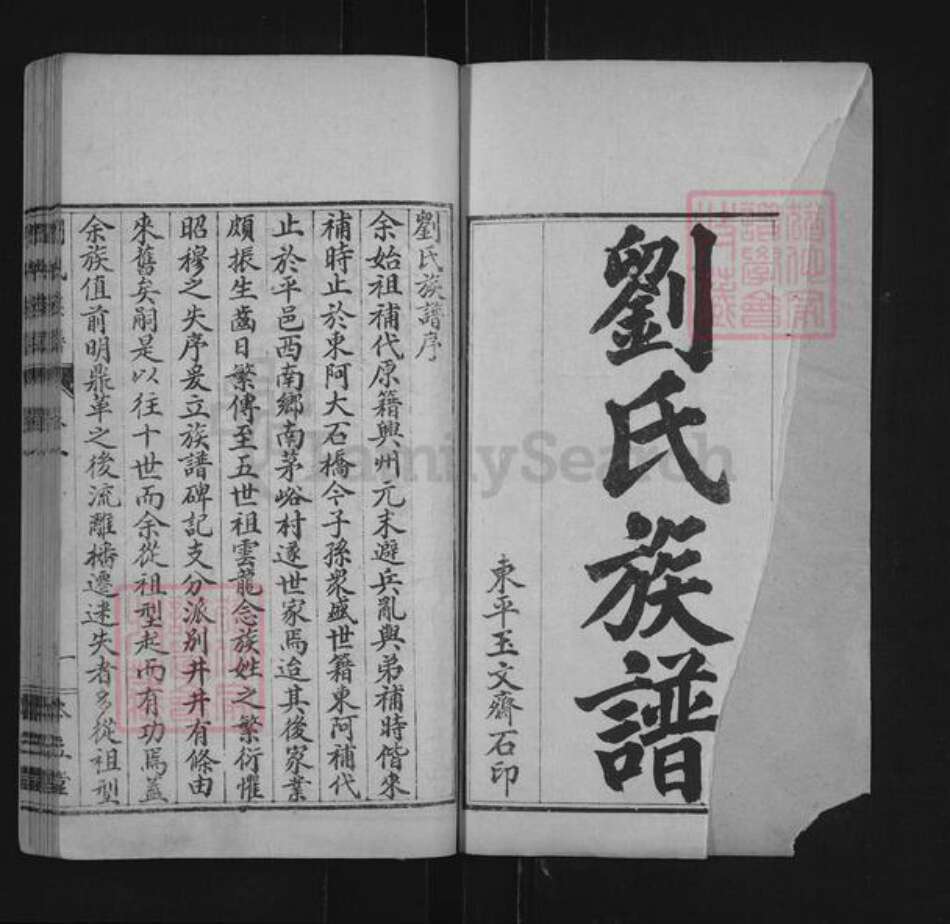 劉氏族譜
東平玉文齋石印
劉氏族譜序
余始祖補代原籍興州元末避兵亂與弟補時偕來
補時止於東阿大石橋今子孫衆盛世籍東阿補代
止於平邑西南鄉南茅峪村遂世家焉迨其後家業
頗振生齒日繁傳至五世祖雲龍念族姓之繁衍懼
昭穆之失序爰立族譜碑記支分派別井井有條由
來舊矣嗣是以往十世而余從祖型起而有功焉蓋
余族值前明鼎革之後流離播遷迷失者多從祖型
FamilySearch